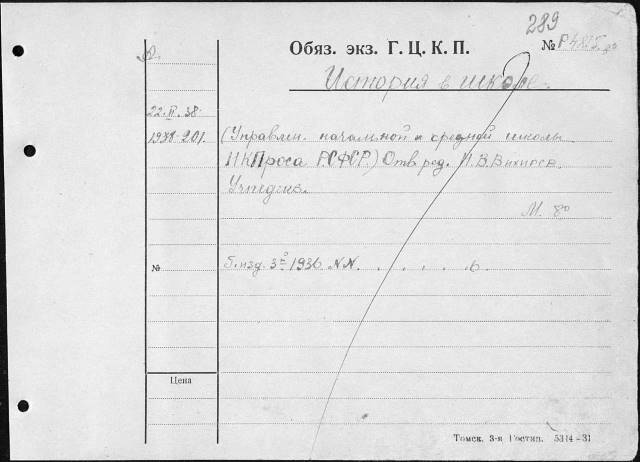 289
Обяз. экз. Г. Ц. К. П.
№ Р4815 80
История в школе.
22.II.38
1938-201.
(Управлен. начальной и средней школы
НКПроса РСФСР.) Отв. ред.
Учпедгиз.
М. 80
№
б. изд. 3° 1936 NN. . . . . 6.
Цена
Томск. 3-я Гостип. 5314-31